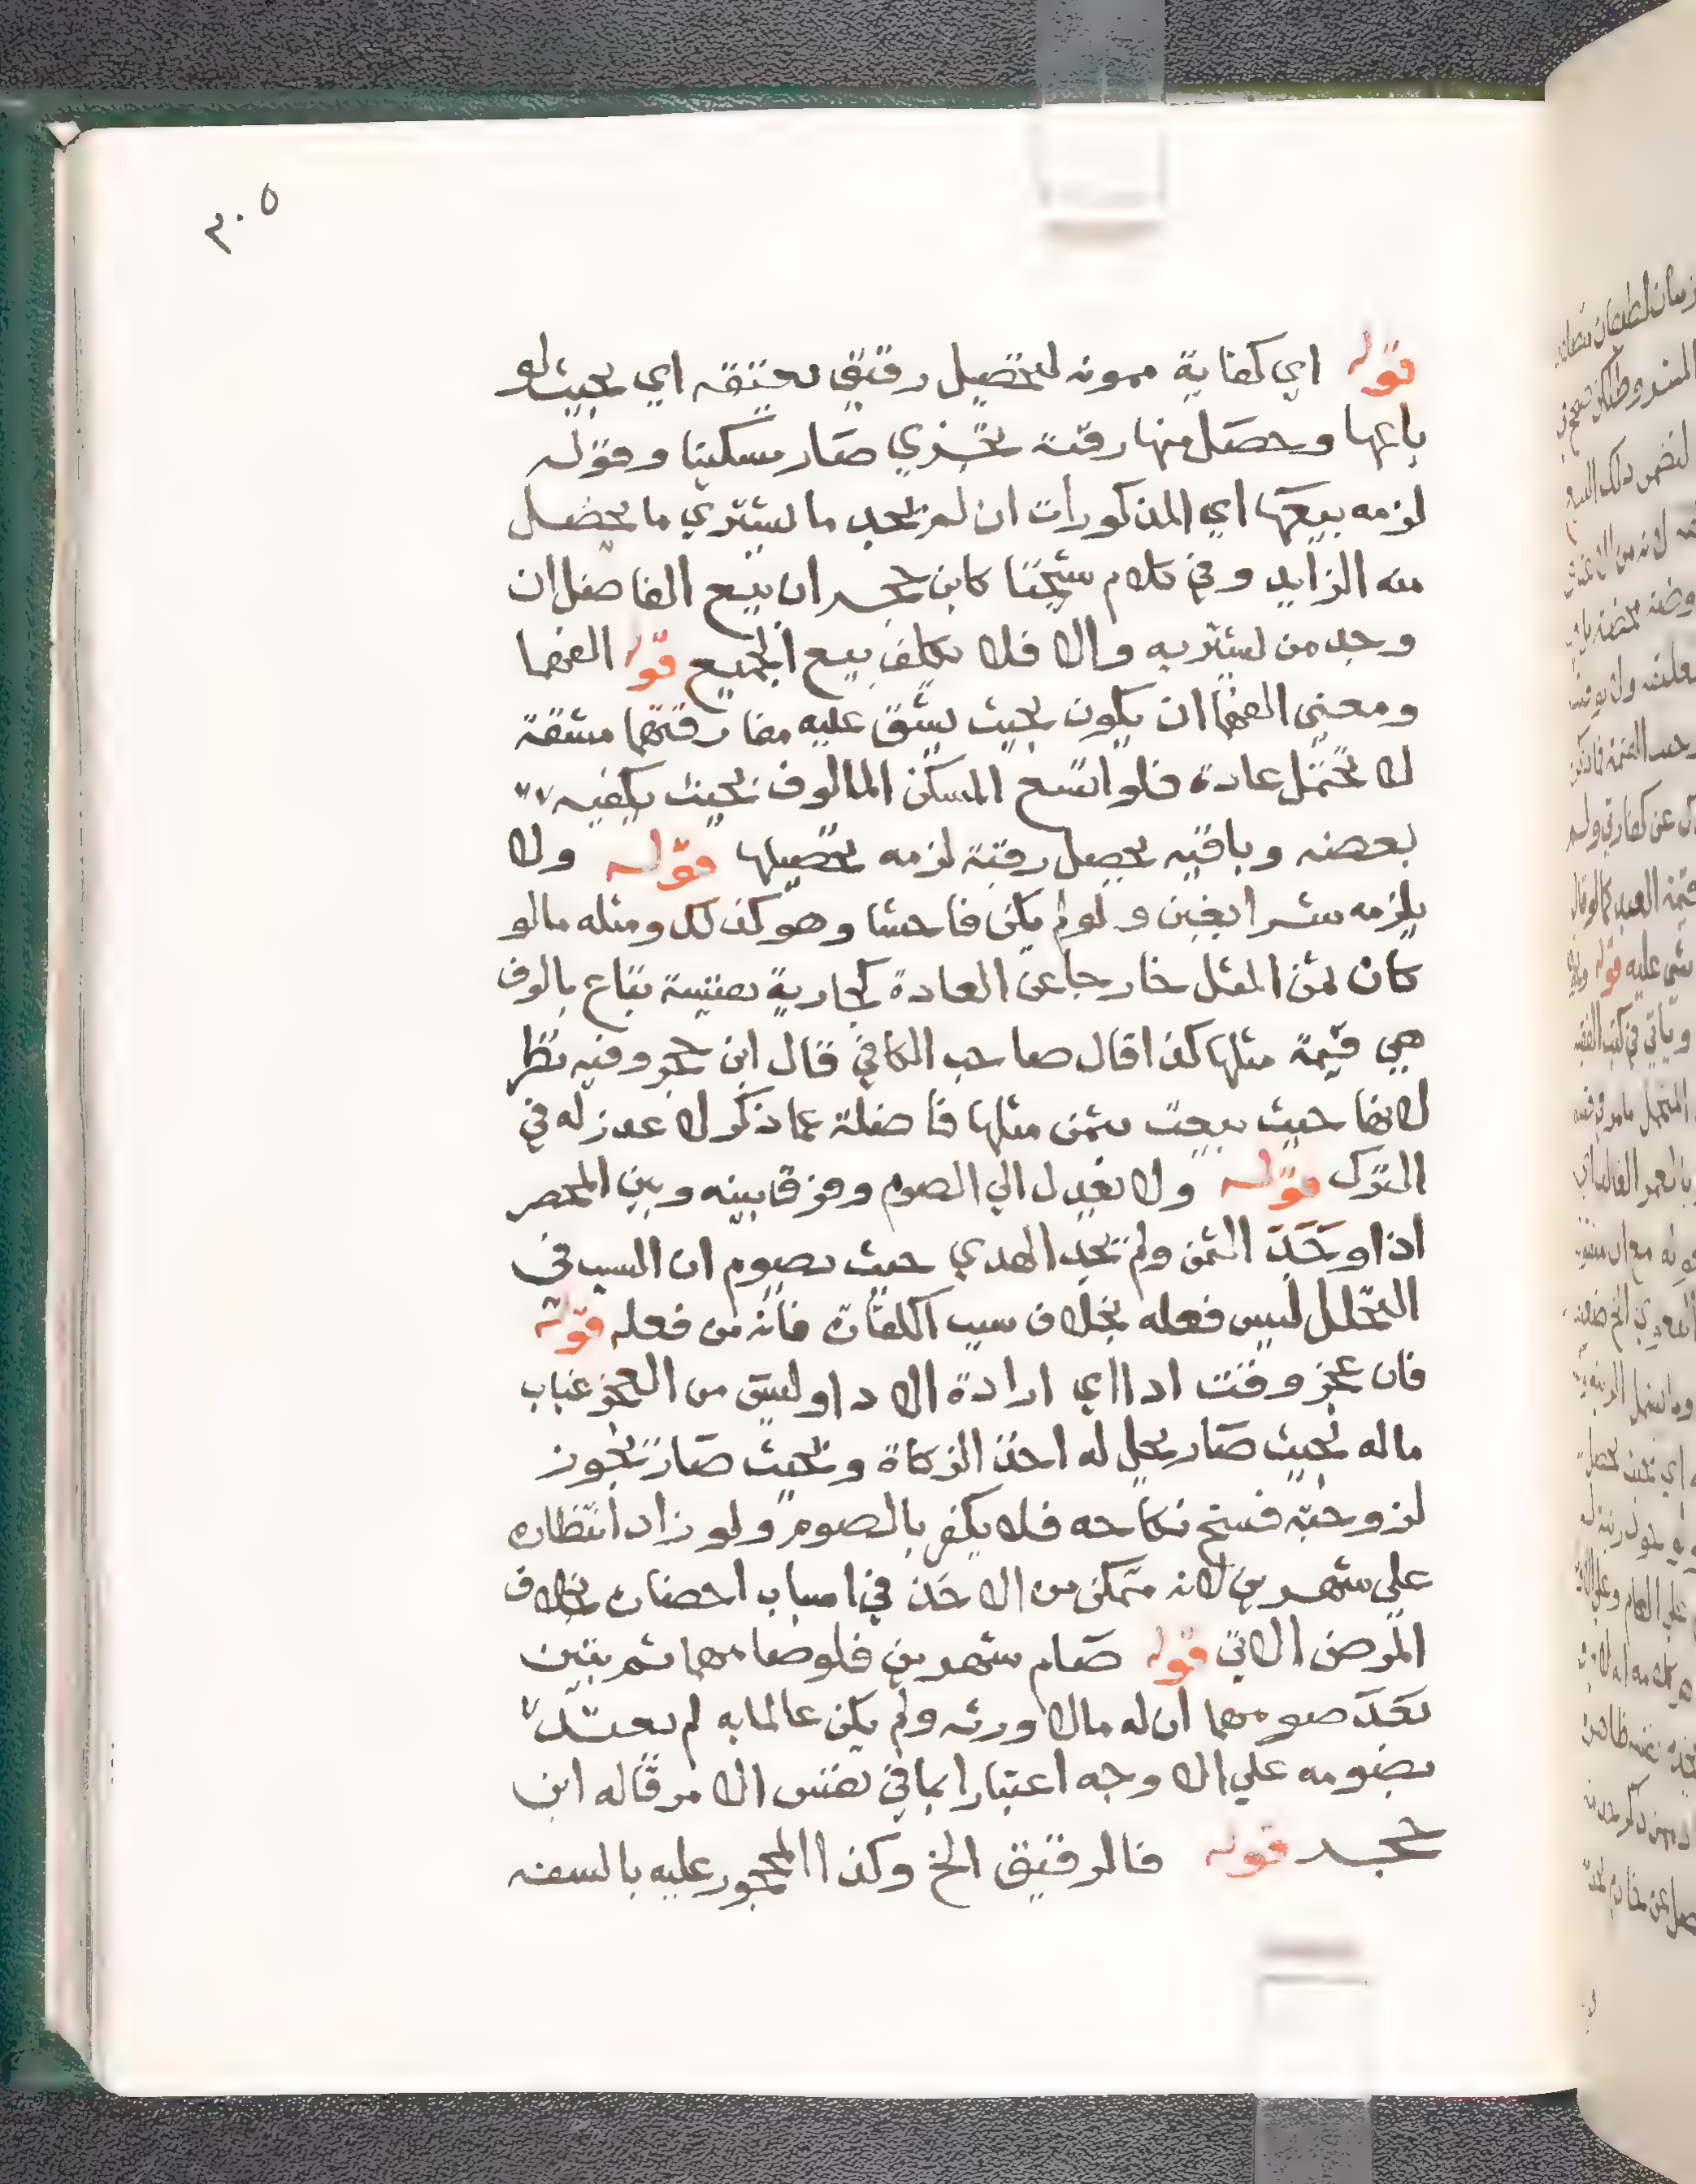 ٣٠٥
قوله اي كفاية ممونه لتحصيل رقيق يعتقه اي بحيث لو
باعها وحصل منها رقبة تجزي صار مسكينا وقوله
لزمه بيعها اي المذكورات ان لم يجد ما يشتري ما يحصل
منه الزايد وفي كلام شيخنا كابن حجر ان يبيع الفاضل ان
وجد من يشتريه والا فلا يكلف بيع الجميع قوله الفهما
ومعني الفهما ان يكون بحيث يشق عليه مفارقتهما مشقة
لا تحتمل عادة فلو اتسع المسكن المالوف بحيث يكفيه
بعضه وباقيه يحصل رقبة لزمه تحصيلها قوله ولا
يلزمه شرا بغبن ولو لم يكن فاحشا وهو كذلك ومثله ما لو
كان ثمن المثل خارجا عن العادة كجارية نفيسة تباع بالوف
هي قيمة مثلها كذا قال صاحب الكافي قال ابن حجر وفيه نظر
لانها حيث بيعت بثمن مثلها فاضلة عما ذكر لا عذر له في
الترك قوله ولا يعدل الي الصوم وفرقا بينه وبين المحصر
اذا وجد الثمن ولم يجد الهدي حيث يصوم ان السبب في
التحلل ليس فعله بخلاف سبب الكفارة فانه من فعله قوله
فان عجز وقت ادا اي ارادة الادا وليس من العجز غياب
ماله بحيث صار يحل له اخذ الزكاة وبحيث صار تجوز
لزوجته فسخ نكاحه فلا يكفر بالصوم ولو زاد انتظاره
علي شهرين لانه متمكن من الاخذ في اسباب احضاره بخلاف
المرض الاتي قوله صام شهرين فلو صامهما ثم تبين
بعد صومهما ان له مالا ورثه ولم يكن عالما به لم يعتد
بصومه علي الاوجه اعتبارا بما في نفس الامر قاله ابن
حجر قوله فالرقيق الخ وكذا المحجور عليه بالسفه